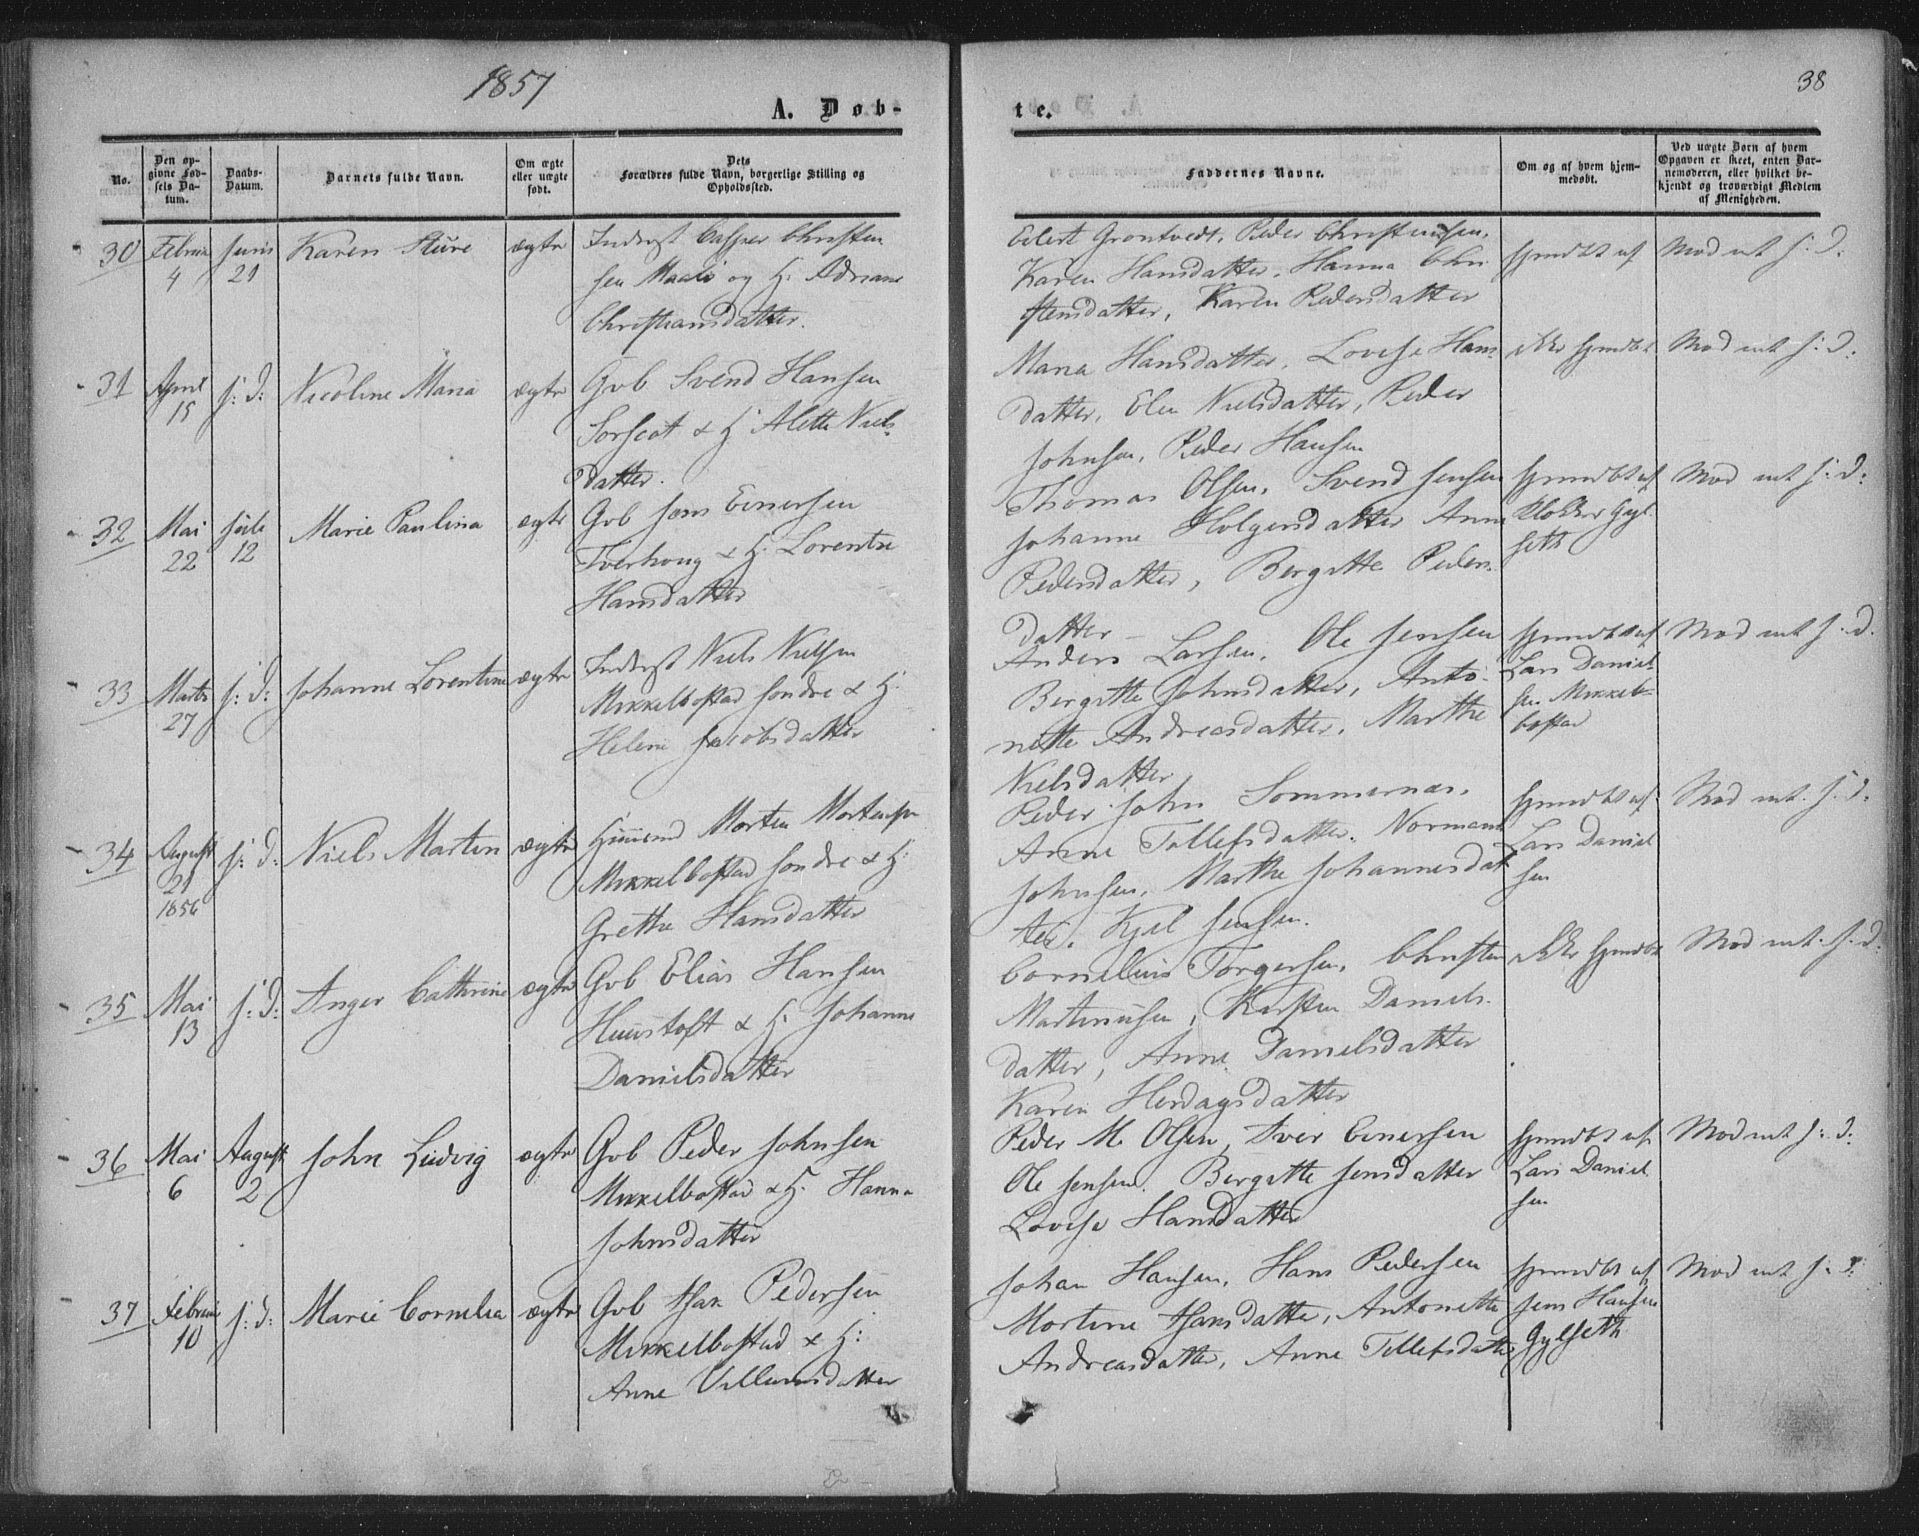 1857
38
A. Døb-
te.
No.
Den op-
givne Fød-
sels Da-
tum.
Daabs-
Datum.
Barnets fulde Navn.
Om ægte
eller uægte
født.
Dets
Forældres fulde Navn, borgerlige Stilling og
Opholdssted.
Faddernes Navne.
Om og af hvem hjem-
medøbt.
Ved uægte Børn af hvem
Opgaven er skeet, enten Bar-
nemoderen, eller hvilket be-
kjendt og troværdigt Medlem
af Menigheden.
30
Februar
4
Junis
21
Karen Sture
ægte
Inderst Casper Christen
sen og H: Adriane
Christiansdatter.
Eilert Grøntvedt, Peder Christensen,
Karen Hansdatter, Hanna Chri
stensdatter, Karen Pedersdatter
hjmdbt af
Mod: J: D:
31
April
15
J: D:
Nicoline Maria
ægte
Gvb Svend Hansen
& H: Aletta Niels-
datter.
Maria Hansdatter, Lovise Hans
datter, Elen Nielsdatter, Peder
Johnsen, Peder Hansen
ikke hjmdbt
Mod int J: D:
32
Mai
22
Juli
12
Marie Paulina
ægte
Gvb Jens Einersen
& H: Lorentse
Hansdatter
Thomas Olsen, Svend Jensen
Johanne Holgersdatter Anne
Pedersdatter, Bergitte Peders-
datter –
hjmdbt af
Klokker Gyl-
seth
Mod int J: D:
33
Marts
27
J: D:
Johanne Lorentine
ægte
Inderst Niels Nielsen
Mikkelbostad søndre & H:
Helene Jacobsdatter
Anders Larsen, Ole Jensen
Bergitte Johnsdatter, Anto-
nette Andreasdatter, Marthe
Nielsdatter
hjmdbt af
Lars Daniel
sen Mikkel-
bostad
Mod int J: D.
34
August
21
1856
J: D:
Niels Martin
ægte
Huusmd Morten Mortensen
Mikkelbostad søndre & H:
Grethe Hansdatter
Peder John Sommernæs,
Anne Tollefsdatter, Normann
Johnsen, Marthe Johannesdat
ter, Kjel Jensen.
hjmdbt af
Lars Daniel
sen
Mod int. J: D.
35
Mai
13
J: D:
Inger Cathrine
ægte
Gvb Elias Hansen
Huustoft & H: Johanne
Danielsdatter
Cornelius Torgersen, Christen
Martinusen, Kirsten Daniels-
datter, Anne Danielsdatter
Karen Herdagsdatter
ikke hjmdbt
Mod int. J: D:
36
Mai
6
August
2
John Ludvig
ægte
Gvb Peder Johnsen
Mikkelbostad & H: Hanna
Johnsdatter
Peder M. Olsen, Iver Einersen
Ole Jensen. Bergitte Jensdatter
Lovise Hansdatter
hjmdbt af
Lars Daniel
sen
Mod int J: D:
37
Februar
10
J: D:
Marie Cornelia
ægte
Gvb Isak Pedersen
Mikkelbostad & H:
Anne Villumsdatter
Johan Hansen, Hans Pedersen
Mortine Isaksdatter, Antonette
Andreasdatter, Anne Tollefsdatter
hjmdbt af
Jens Hansen
Gylseth
Mod int J: D: